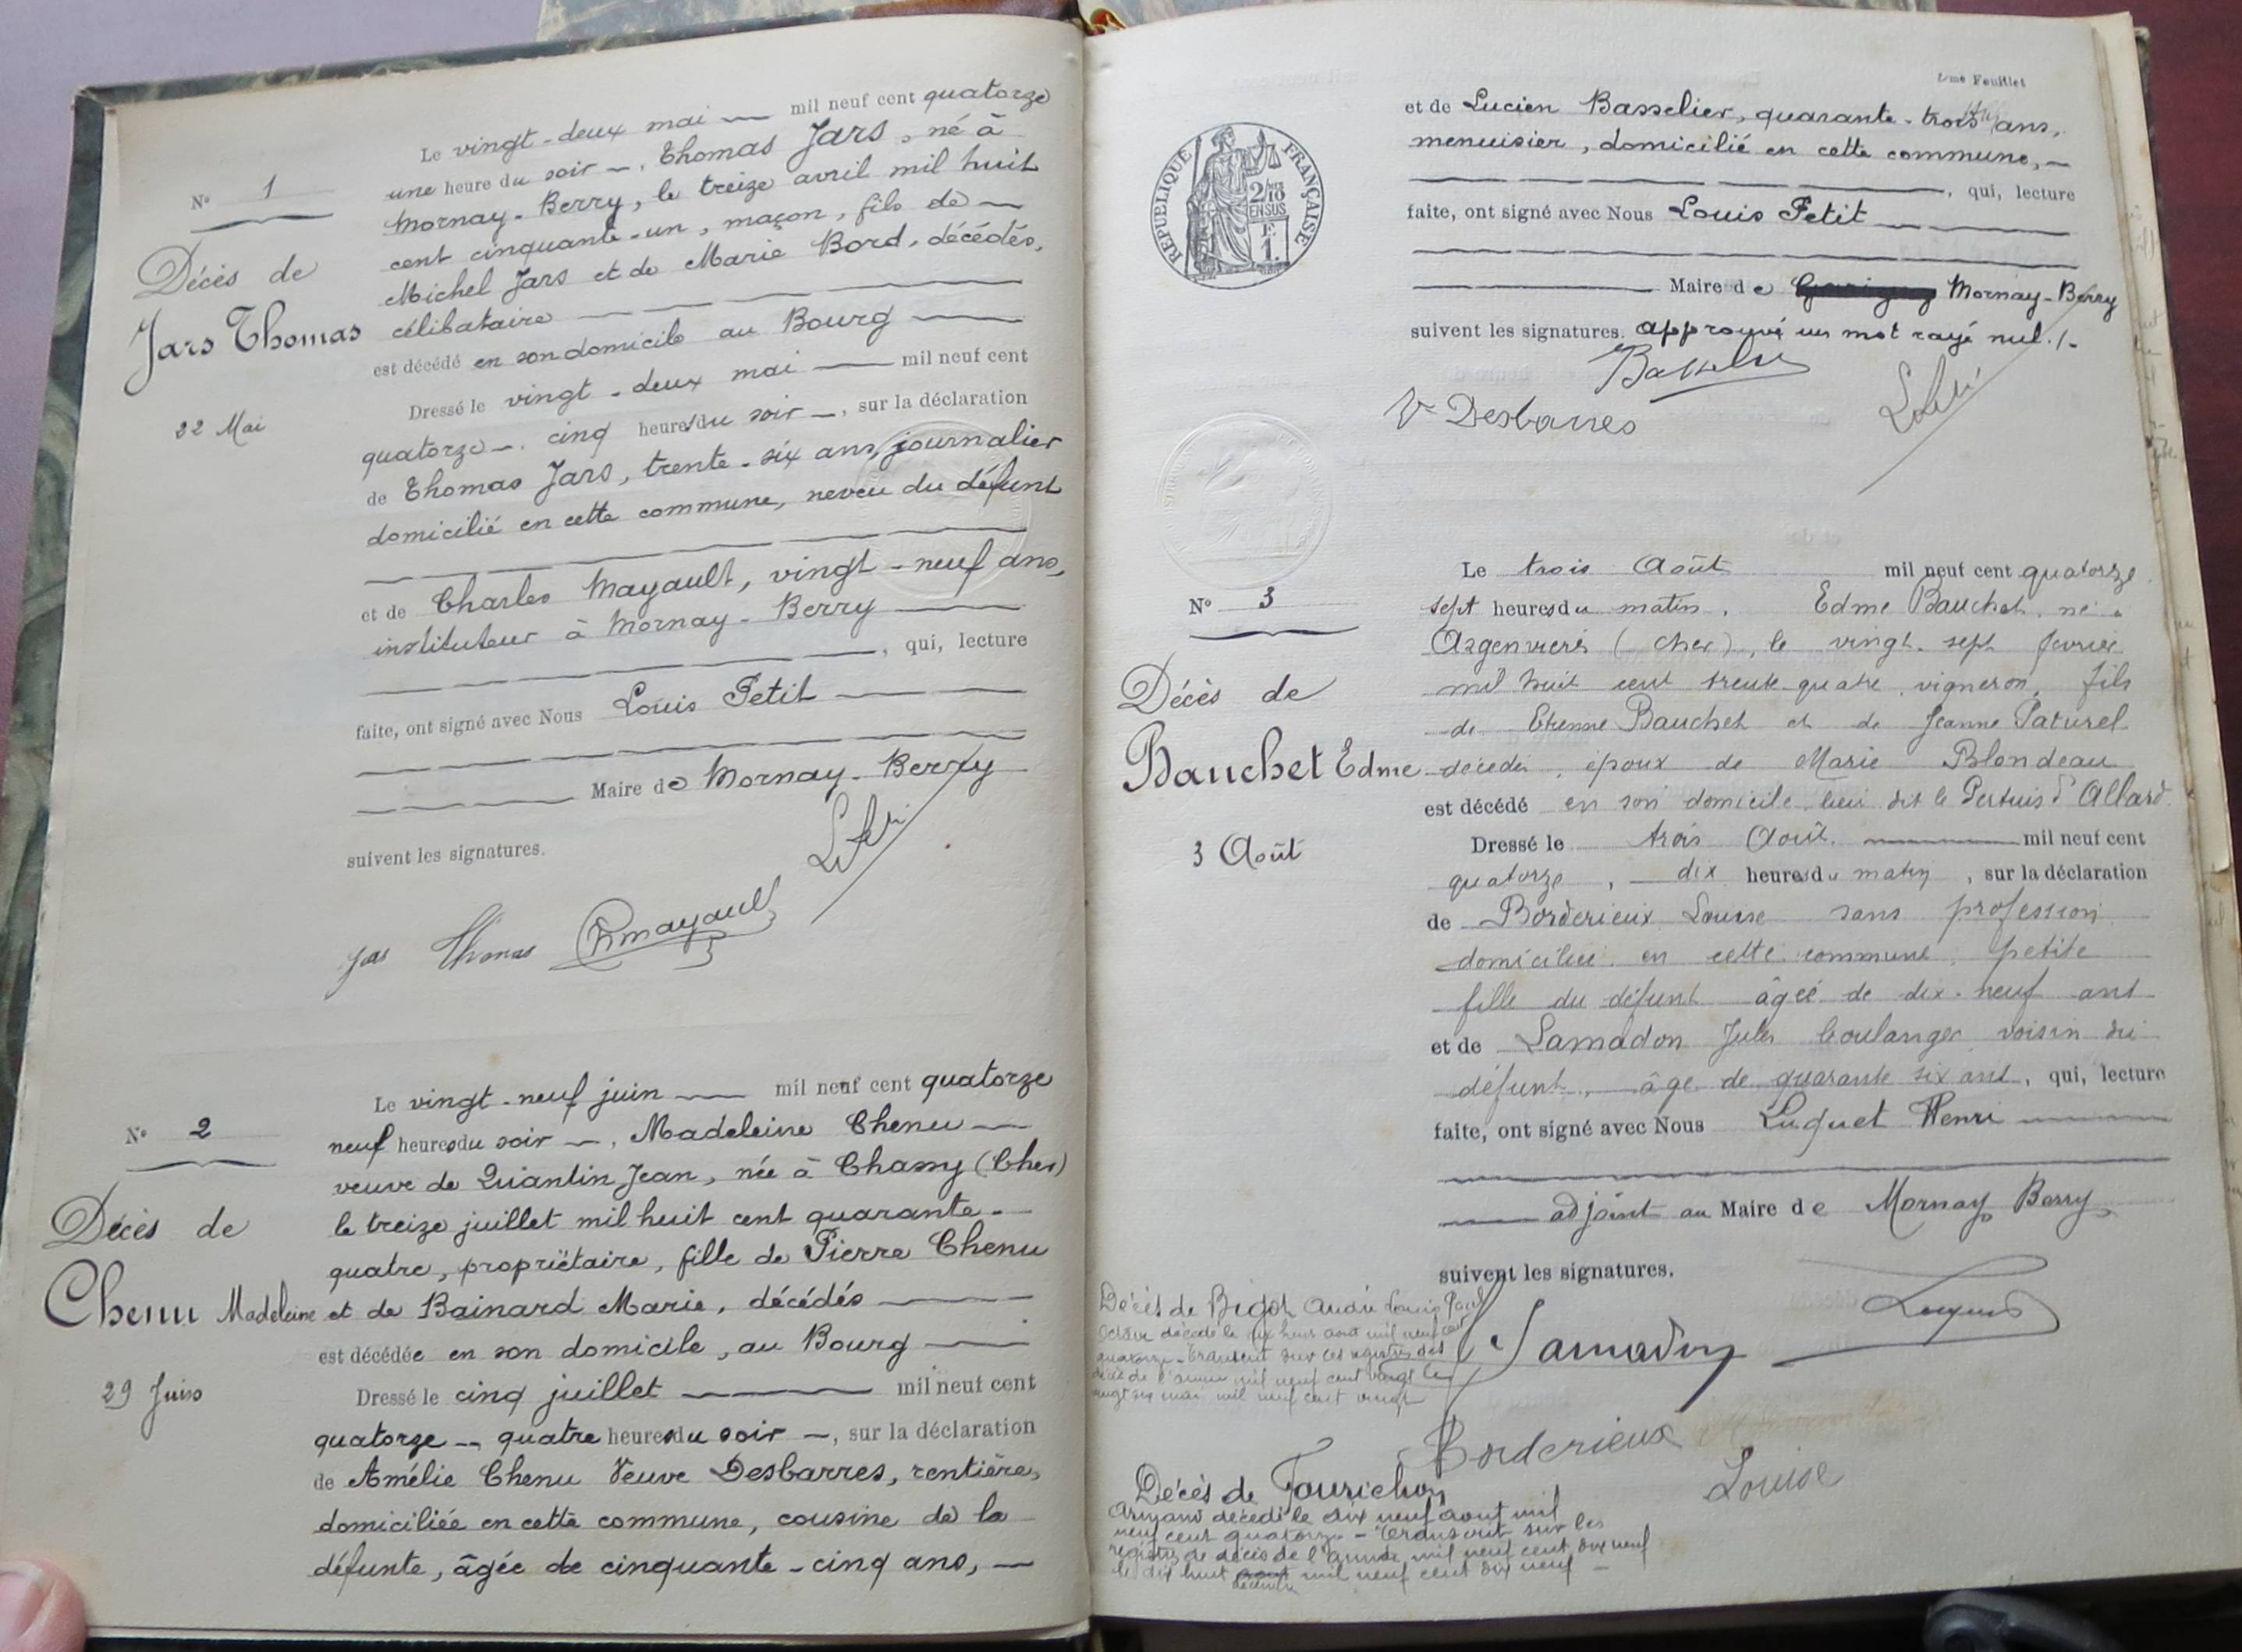 Le vingt-deux mai — mil neuf cent quatorze
N° 1
une heure du soir —, Thomas Jars, né à
Mornay-Berry, le treize avril mil huit
cent cinquante-un, maçon, fils de —
Décès de
Michel Jars et de Marie Bord, décédés,
Jars Thomas
célibataire —
est décédé en son domicile au Bourg —
22 Mai
Dressé le vingt-deux mai — mil neuf cent
quatorze —, cinq heures du soir —, sur la déclaration
de Thomas Jars, trente-six ans, journalier
domicilié en cette commune, neveu du défunt
et de Charles Mayault, vingt-neuf ans,
instituteur à Mornay-Berry —
—, qui, lecture
faite, ont signé avec Nous Louis Petit —
— Maire de Mornay-Berry
suivent les signatures.
LPetit
Jars Thomas ChMayault
Le vingt-neuf juin — mil neuf cent quatorze
N° 2
neuf heures du soir —, Madeleine Chenu —
veuve de Quiantin Jean, née à Chassy (Cher)
le treize juillet mil huit cent quarante-
Décès de
quatre, propriétaire, fille de Pierre Chenu
Chenu Madeleine
et de Bainard Marie, décédés —
est décédée en son domicile, au Bourg —
29 Juin
Dressé le cinq juillet — mil neuf cent
quatorze —, quatre heures du soir —, sur la déclaration
de Amélie Chenu Veuve Desbarres, rentière,
domiciliée en cette commune, cousine de la
défunte, âgée de cinquante-cinq ans, —
Feuillet
et de Lucien Basselier, quarante-trois ans,
menuisier, domicilié en cette commune, —
—, qui, lecture
faite, ont signé avec Nous Louis Petit —
— Maire de Mornay-Berry
suivent les signatures. approuvé un mot rayé nul ./.
RÉPUBLIQUE FRANÇAISE
2/10 EN SUS
F.
1.
Basselier
Vve Desbarres
LPetit
Le trois Août mil neuf cent quatorze
N° 3
sept heures du matin, Edme Bauchet, né à
Argenvières (Cher), le vingt-sept février
mil huit cent trente-quatre, vigneron, fils
Décès de
de Etienne Bauchet et de Jeanne Paturel
Bauchet Edme
décédés, époux de Marie Blondeau
est décédé en son domicile, lieu dit le Pertuis d'Allard
3 Août
Dressé le trois Août — mil neuf cent
quatorze, dix heures du matin, sur la déclaration
de Borderieux Louise sans profession
domiciliée en cette commune, petite
fille du défunt âgée de dix-neuf ans
et de Lamadon Jules boulanger voisin du
défunt, âgé de quarante six ans, qui, lecture
faite, ont signé avec Nous Luquet Henri —
— adjoint au Maire de Mornay Berry
suivent les signatures.
Luquet
Lamadon
Borderieux
Louise
Décès de Bigot André Louis Paul
Octave décédé le dix huit août mil neuf cent
quatorze - Transcrit sur les registres des
décès de l'année mil neuf cent vingt le
vingt six mai mil neuf cent vingt
Décès de Fourichon
Armand décédé le dix neuf aout mil
neuf cent quatorze - Transcrit sur les
registres de décès de l'année mil neuf cent dix neuf
le dix huit aout mil neuf cent dix neuf -
décembre